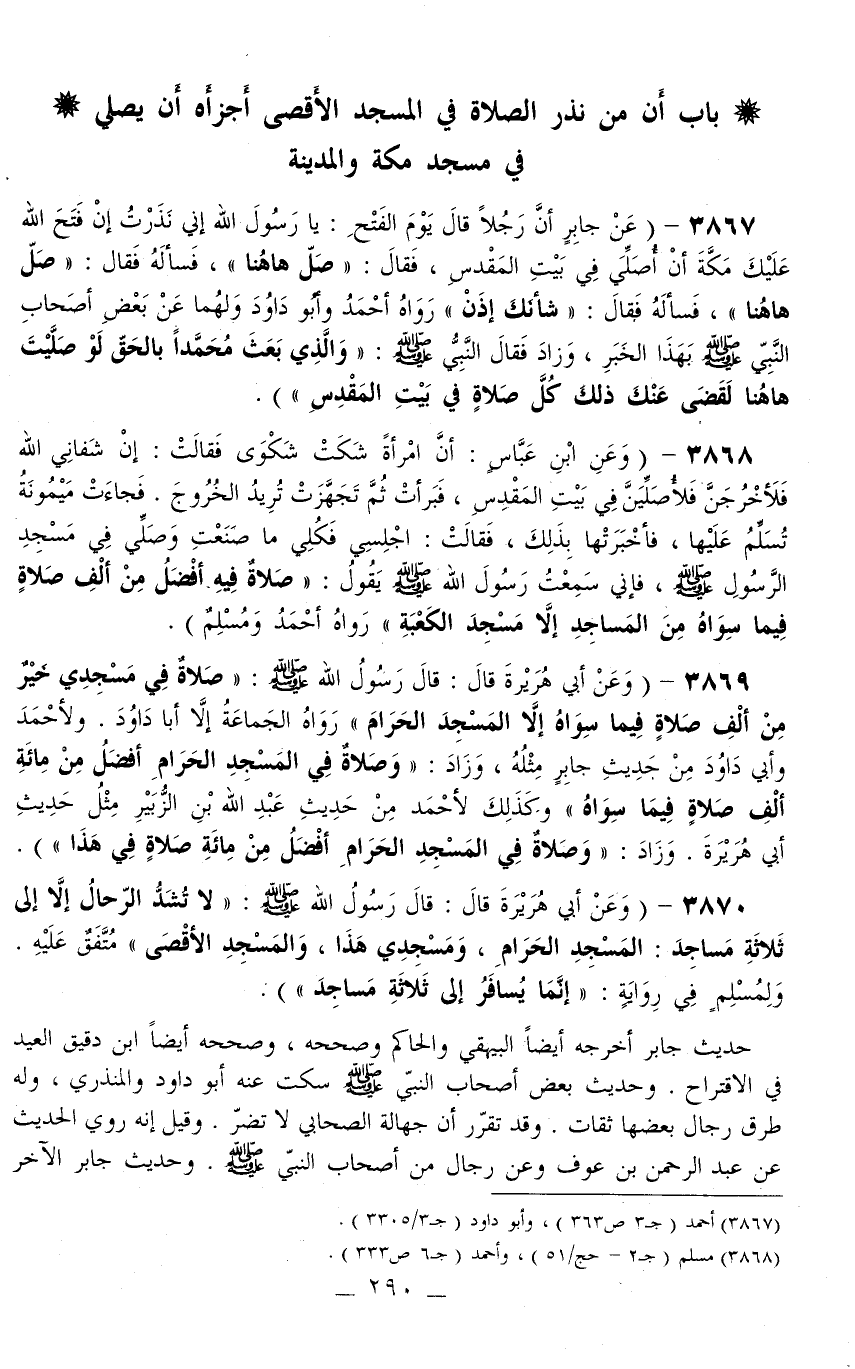 باب أَن من نذر الصلاة في المسجد الأَقصى أَجزأَه أَن يصلي
في مسجد مكة والمدينة
٣٨٦٧ - ( عَنْ جابِرٍ أنَّ رَجُلاً قالَ يَوْمَ الفَتْحِ : يا رَسُولَ الله إني نَذَرْتُ إنْ فَتَحَ الله
عَلَيْكَ مَكَّةَ أنْ أُصَلِّيَ فِي بَيْتِ المَقْدِسِ ، فَقالَ : « صَلّ هاهُنا » ، فَسألَهُ فَقال : « صَلّ
هاهُنا » ، فَسألَهُ فَقالَ : « شأنَكَ إذَنْ » رَوَاهُ أحْمَدُ وأبُو دَاوُدَ وَلهُما عَنْ بَعْضِ أصَحابِ
النَّبِيّ ﷺ بَهَذَا الخَبَرِ ، وَزادَ فَقالَ النَّبِيُّ ﷺ : « وَالَّذِي بَعَثَ مُحَمَّداً بالحَقّ لَوْ صَلَّيْتَ
هاهُنا لَقَضَى عَنْكَ ذلكَ كُلَّ صَلاةٍ فِي بَيْتِ المَقْدِسِ » ) .
٣٨٦٨ - ( وَعَنِ ابْنِ عَبَّاسٍ : أنَّ امْرأةً شَكَتْ شَكْوَى فَقالَتْ : إنْ شَفانِي الله
فَلَأخْرُجَنَّ فَلأُصَلِّيَنَّ فِي بَيْتِ المَقْدِسِ ، فَبَرأتْ ثُمَّ تَجَهَّزَتْ تُرِيدُ الخُرُوجَ . فَجاءَتْ مَيْمُونَةُ
تُسَلِّمُ عَلَيْها ، فأخْبَرَتْها بِذَلِكَ ، فَقالَتْ : اجْلِسِي فَكُلِي ما صَنَعْتِ وَصَلِّي فِي مَسْجِدِ
الرَّسُولِ ﷺ ، فإني سَمِعْتُ رَسُولَ الله ﷺ يَقُولُ : « صَلاةٌ فِيهِ أفْضَلُ مِنْ ألْفِ صَلاةٍ
فِيما سِوَاهُ مِنَ المَساجِدِ إلَّا مَسْجِدَ الكَعْبَةِ » رَواهُ أحْمَدُ وَمُسْلِمٌ ) .
٣٨٦٩ - ( وَعَنْ أبي هُرَيْرةَ قالَ : قالَ رَسُولُ الله ﷺ : « صَلاةٌ فِي مَسْجِدِي خَيْرٌ
مِنْ ألْفِ صَلاةٍ فِيما سِوَاهُ إلَّا المَسْجِدَ الحَرَامَ » رَوَاهُ الجَماعَةُ إلَّا أبا دَاوُدَ . ولأحْمَدَ
وأبي دَاوُدَ مِنْ حَدِيثِ جابِرٍ مِثْلُهُ ، وَزَادَ : « وَصَلاةٌ فِي المَسْجِدِ الحَرَامِ أفضَلُ مِنْ مِائَةِ
ألْفِ صَلاةٍ فِيمَا سِوَاهُ » وكَذَلِكَ لأحْمَد مِنْ حَدِيثِ عَبْدِ الله بْنِ الزُّبَيْرِ مِثْلُ حَدِيثِ
أبي هُرَيْرَةَ . وَزَادَ : « وَصَلاةٌ فِي المَسْجِدِ الحَرَامِ أفْضَلُ مِنْ مِائَةِ صَلاةٍ فِي هَذَا » ) .
٣٨٧٠ - ( وَعَنْ أبي هُرَيْرَةَ قالَ : قالَ رَسُولُ الله ﷺ : « لا تُشَدُّ الرّحالُ إلَّا إلى
ثَلاثَةِ مَساجِدَ : المَسْجِدِ الحَرَامِ ، وَمَسْجِدِي هَذَا ، وَالمَسْجِدِ الأقْصَى » مُتَّفَقٌ عَلَيْهِ .
وَلِمُسْلِمٍ فِي رِوَايَةٍ : « إنَّمَا يُسافَرُ إلى ثَلاثَةِ مَساجِدَ » ) .
حديث جابر أخرجه أيضاً البيهقي والحاكم وصححه ، وصححه أيضاً ابن دقيق العيد
في الاقتراح . وحديث بعض أصحاب النبيّ ﷺ سكت عنه أبو داود والمنذري ، وله
طرق رجال بعضها ثقات . وقد تقرّر أن جهالة الصحابي لا تضرّ . وقيل إنه روي الحديث
عن عبد الرحمن بن عوف وعن رجال من أصحاب النبيّ ﷺ . وحديث جابر الآخر
(٣٨٦٧) أحمد ( جـ٣ ص٣٦٣ ) ، وأبو داود ( جـ٣٣٠٥/٣ ) .
(٣٨٦٨) مسلم ( جـ٢ - حج/٥١ ) ، وأحمد ( جـ٦ ص٣٣٣ ) .
_ ٢٩٠ _